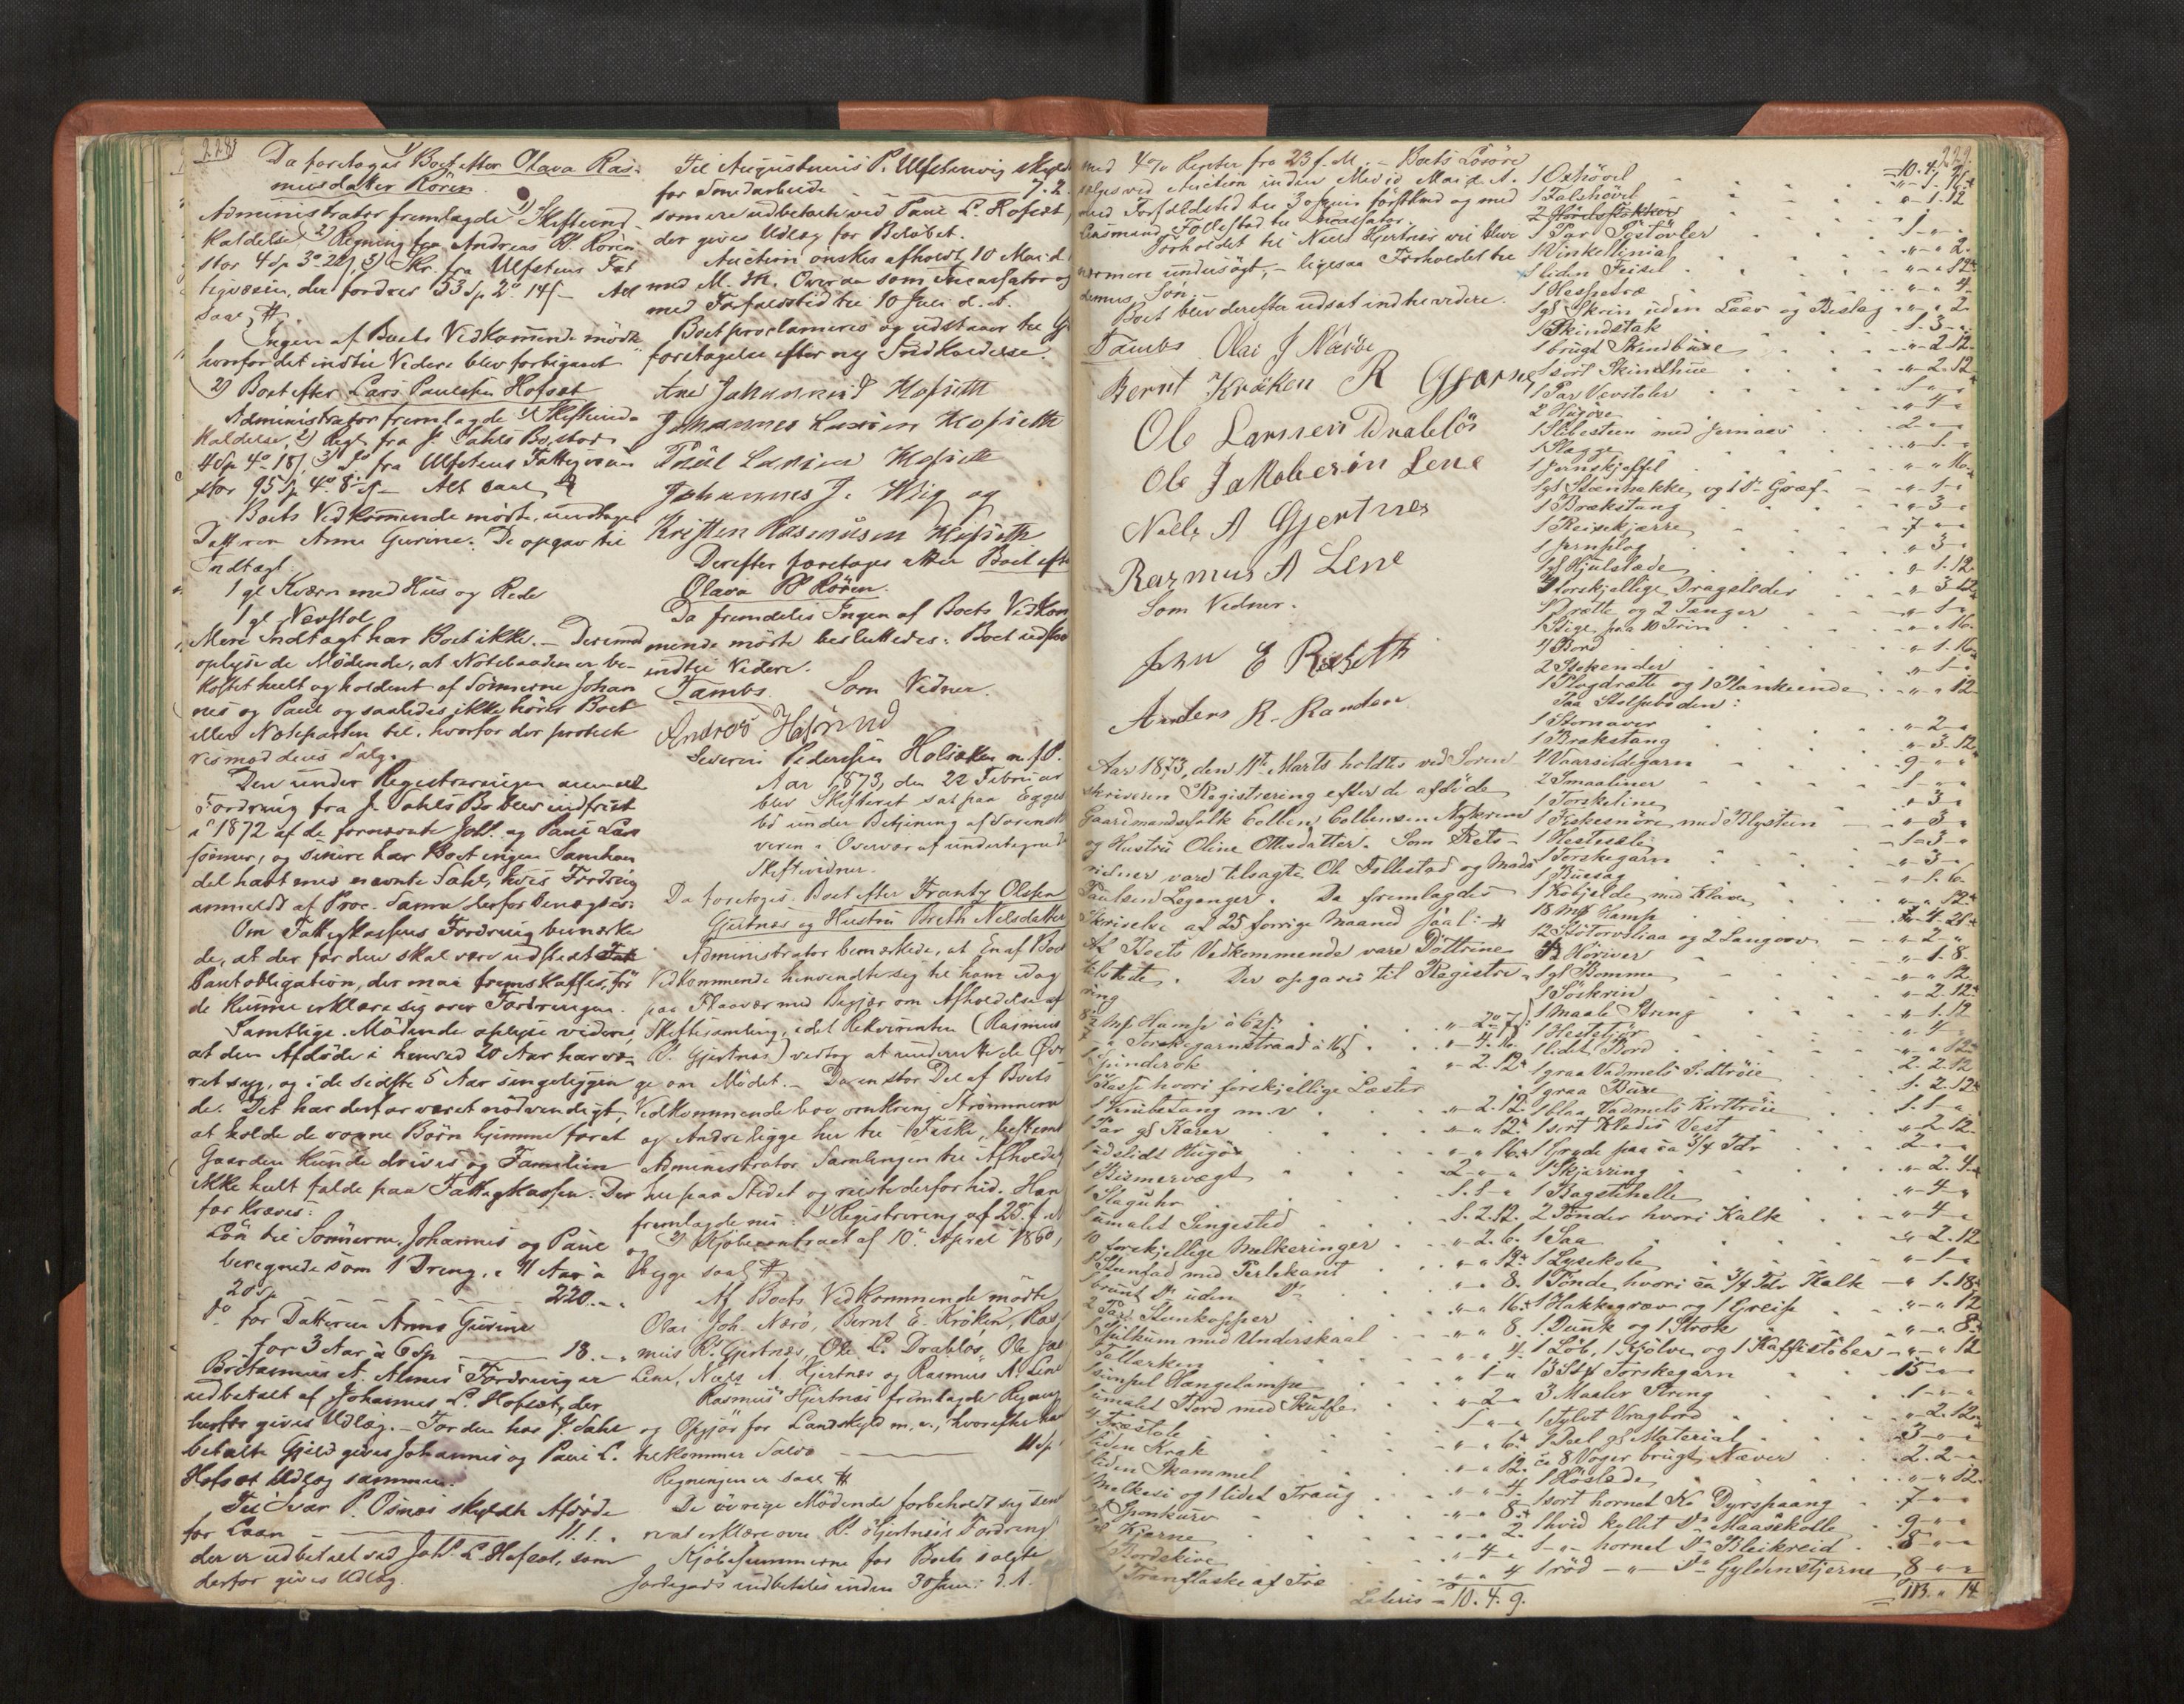 228
Da foretoges 1) Boet efter Olava Ras-
musdatter Rören
Administrator fremlagde 1) Skifteind-
kaldelse, 2) Regning fra Andreas R. Rören
stor 4 Sp 3 o 22 s, 3) Skr. fra Ulfstens Fat
tigvæsen, der fordrer 53 Sp. 2 o 14 s - Alt
saal. #
Ingen af Boets Vedkommende mödte
hvorfor det indtil Videre blev forbigaaet
2) Boet efter Lars Paulsen Hofset
Administrator fremlagde 1) Skifteind-
kaldelse, 2) Regn fra J. Dahls Bo, stor
4 Sp 4 o 18 s, 3) Do fra Ulfstens Fattigvæsen
stor 95 Sp 4 o 8 s - Alt saal. #
Boets Vedkommende mödte, undtagen
Datteren Anne Gurine. De opgav til
Indtægt
1 gl Kværn med Hus og Rede
1 gl Vævstol
Mere Indtægt har Boet ikke. - Derimod
oplyste de Mödende, at Notebaaden er be-
kostet helt og holdent af Sönnerne Johan
nes og Paul og saaledes ikke hörer Boet
eller Noteparten til, hvorfor der protest
res mod dens Salg.
Den under Registreringen anmeldte
Fordring fra J. Dahls Bo blev indfriet
i 1872 af de fornævnte Johs. og Paul Lars
sönner, og senere har Boet ingen Samhan
del havt med nævnte Dahl, hvis Fordring
anmeldt af Proc. Sanne derfor benægtes.
Om Fattigkassens Fordring bemærke
de, at der for den skal være udstedt
Pantobligation, der maa fremskaffes, för
de kunne erklære sig over Fordringen.
Samtlige Mödende oplyse videre,
at den Afdöde i henved 20 Aar har væ-
ret syg, og i de sidste 5 Aar sengeliggen
de. Det har derfor været nödvendigt,
at holde de voxne Börn hjemme forat
Gaarden kunde drives og Familien
ikke helt falde paa Fattigkassen. Der
for kræves:
Lön til Sönnerne, Johannes og Paul
beregnede som 1 Dreng, i 11 Aar à
20 Sp 220. - "
Do for Datteren Anne Gurine
for 3 Aar à 6 Sp 18. - "
Britanius A. Almes Fordring er
udbetalt af Johannes L. Hofset, der
herfor gives Udlæg. - For den hos J. Dahl
betalte Gjeld gives Johannes og Paul L.
Hofset Udlæg sammen.
Til Ivar P. Osnes skyldte Afdöde
for Laan 11. 1. "
der er udbetalt ved Johs. L. Hofset, som
derfor gives Udlæg.
Til Augustinus P. Ulfstenvig skyldes
for Smedarbeide 7. 2.
som ere udbetalte ved Paul L. Hofset,
der gives Udlæg for Belöbet.
Auction önskes afholdt, 10 Mai d.
med M. M. Overaa som Incassator og
med Forfaldstid til 10 Juli d. A.
Boet proclameres og udstaar til
foretagelse efter ny Indkaldelse.
Ane Johannesd Hofseth
Johannes Larsen Hofseth
Paul Larsen Hofseth
Johannes J. Wig og
Kristen Rasmusen Hofseth
Derefter foretoges atter Boet efter
Olava R Rören.
Da fremdeles Ingen af Boets Vedkom
mende mödte besluttedes: Boet udstaar
indtil Videre.
Tambs. Som Vidner.
Andreas Hasund
Severin Pedersen Holsæker m.f.P.
Aar 1873, den 22 Februar
blev Skifteret sat paa Egges
bö under Betjening af Sorenskri
veren i Overvær af undertegnede
Skiftevidner.
Da foretoges Boet efter Frantz Olssen
Gjertnæs og Hustru Brethe Nelsdatter
Administrator bemærkede, at En af Boets
Vedkommende henvendte sig til ham idag
paa Flaavær med Begjær om Afholdelse af
Skiftesamling, idet Rekvirenten (Rasmus
R. Gjertnæs) vedtog at underrette de Øvri
ge om Mödet. - Da en stor Del af Boets
Vedkommende bor omkring Strömmen
og Andre ligge her til Fiske, bestemt
Administrator Samlingen til Afholdelse
her paa Stedet og reiste derfor hid. Han
fremlagde nu: 1) Registrering af 25 f. M
og 2) Kjöbecontract af 10 April 1860,
begge saal. #
Af Boets Vedkommende mödte
Olai Joh. Nærö, Bernt E. Kröken, Ras
mus R. Gjertnæs, Ole L. Drablös, Ole Jac
Lene, Neels A. Hjertnæs og Rasmus A. Lene
Rasmus Hjertnæs fremlagde Regning
og Opgjör for Landskyld m. v., hvorefter ham
tilkommer Saldo 11 Sp
Regningen er saal. #
De övrige Mödende forbeholdt sig sen
ere at erklære over R. Gjertnæs's Fordring
Kjöbesummerne for Boets solgte
Jordegods indbetales inden 30 Juni d. A.
229.
med 4% Renter fra 23 f. M. - Boets Lösöre
sælges ved Auction inden Medio Mai d. A.
med Forfaldstid til 30 Juni förstkmd og med
Lensmand Follestad til Incassator.
Forholdet til Neels Hjertnæs vil blive
nærmere undersögt, - ligesaa Forholdet til
Boet blev derefter udsat indtil videre.
Tambs Olai J Næröe
Bernt Kröken R Gjærne
Ole Larssen Drablös
Ole Jakobersön Lene
Nells A Gjertnes
Rasmus A Lene
Som Vidner.
John E Röiseth
Anders R. Randen
Aar 1873, den 11te Marts holdtes ved Soren
skriveren Registrering efter de afdöde
Gaardmandsfolk Colben Colbensen Nykrem
og Hustru Oline Ottosdatter. Som Rets-
vidner vare tilsagte Ole Follestad og Mads
Paulsen Leganger. Da fremlagdes
Skrivelse af 25 forrige Maaned saal: #
Af Boets Vedkommende vare Döttrene
tilstede. Der opgaves til Registre-
ring
8½ Mp Hamp à 6 s " - 2. 7
Torskegarnstraad à 16 s " - 4. 16.
1 Spinderok " - 2. 12
1 Kasse hvori forskjellige Læster
1 Knibetang m. v. " - 2. 12
1 Par gl Karer " - " 12
1 udslidt Hugöx " - " 16
1 Bismervægt 2 - " - "
1 Slaguhr 1. 1 - "
1 umalet Sengested 1. 2. 12
10 forskjellige Melkeringer " - 2. 6.
1 Stenfad med Perlekant " - " 12
1 brunt Do uden Do " - " 8.
2 Par Stenkopper " - " 16
1 Spülkum med Underskaal " - " 8
Tallerken " - " 4.
1 simpel Hængelampe " 1 - "
1 umalet Bord med Skuffe " - 2 -
4 Træstole 1 - " - "
1 liden Krak " - " 6
1 liden Skammel " - " 12.
1 Melkesi og 1 lidet Traug " - " 4
1 gl Sponkurv " - " 8
1 gl Kjerne " - " 2.
1 Bordskive " - 4 -
1 Tranflaske af Træ " - " 4
Lateris - 10. 4. 9.
- 10. 4. 9
1 Oxhövel " - 1. 16
1 Falshövel " - 1. 12
2 1 -
1 Par Söstövler 1 - " -
1 Vinkellinial " - " 2
1 liden Feisel " - " 12
1 Hespetræ " - " 4
1 gl Skrin uden Laas og Beslag " - " 2
1 Skindstak 1 - 3 -
1 brugt Skindbuxe " - 2. 12
1 sort Skindhue " - 2. 12
1 Par Vævstoler 1 - " -
2 Hugöxe " - 4 -
1 Slibesteen med Jernaas 2 - " -
1 Slægge " - 1 -
1 Jernskjeffel " - " 16
1 gl Steenhakke og 1 Do Græf " - 1 -
1 Brækstang " - 3 -
1 Reisekjærre 7 - " -
1 Jernplog " - 3 -
1 gl Hjulslæde " - 1. 12
3 forskjellige Dragslæder " - 3 12
1 Drætte og 2 Tænger " - 1 -
1 Stige paa 10 Trin " - " 16
4 Bord " - 1. 16
2 Stokender " - 1 -
1 Plogdrætte og 1 Plankeende " - " 12
Paa Stolpeboden:
1 Stornaver " - 2 -
1 Brækstang " - 3. 12
4 Vaarsildegarn 9 - " - "
2 Smaaliner 1 - " -
1 Torskeline " - 3 -
1 Fiskesnöre med Blysteen " - 3 -
1 Hestesæle 1 - 3 -
1 Torskegarn " - 3 -
1 Buesag " - 1. 6.
1 Kobjelde med Klave " - " 12
18 Mp Hamp - 4 - 21
12 Slotorvliaa og 2 Langorv " - 2 -
4 Höriver " - 1. 8.
1 gl Bomme " - " 12
1 Söskrin " - 2. 12
1 maale Streng " - 1. 12
1 Hestekjör " - 4
1 lidet Bord " - " 12
1 graa Vadmels Sidtröie 2. 2. 12
1 graa Buxe 1. 2. 12
1 blaa Vadmels Korttröie 1. 1 -
1 sort Klædes Vest " - 2. 12
1 Gryde paa ca 3/4 Tdr 2 - " -
1 Skjærring " - 2. 4
1 Bagstehelle " - 4 -
2 Tönder hvori Kalk " - 4 -
1 Saa " - 2. 12
1 Lysekole " - 1 -
1 Tönde hvori ca 3/4 Tdr Kalk - " 1. 18
1 Hakkegræv og 1 Greip " - " 12
1 Dunk og 1 Strok " - " 8
1 Löb, 1 Kjölve og 1 Kaffistöber " - " 12
13 Stk Torskegarn 15 - " -
3 Maaler Streng 1 - " -
1 Tylvt Vragbord " - 2. 12
1 Deel gl Material 3 - " -
ca 8 Voger brugt Næver 2. 2 -
1 Höslæde " - " 12
1 sort hornet Ko Dyrspaang 7 - " -
1 hvid kollet Do Maaskolla 9 - " -
1 - " - hornet Do Bleikreid 8 - " -
1 röd - " - Do Gyldenstjerne 8 - " -
113. " 14